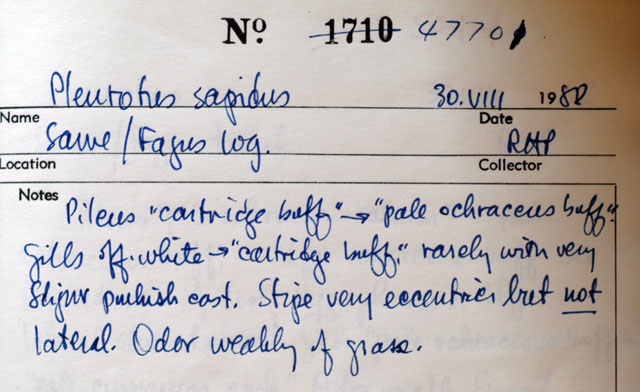 Nº 1710 4770
Pleurotus sapidus 30.VIII 1982
Name Date
Same / Fagus log. RHP
Location Collector
Notes
Pileus "cartridge buff" → "pale ochraceous buff".
Gills off-white → "cartridge buff." rarely with very
slight pinkish cast. Stipe very eccentric but not
lateral. Odor weakly of grass.